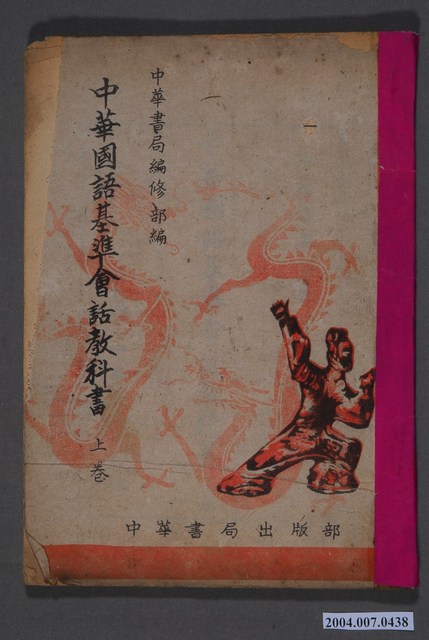 中華書局編修部編
中華國語基準會話教科書 上卷
中華書局出版部
2004.007.0438